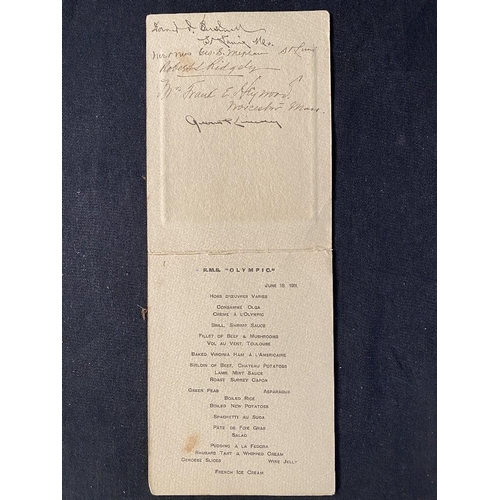 St Louis Mo.
Mr & Mrs Geo. S.
Robert Ridgely
Mrs Frank E. Heymor
Worcester Mass.
R.M.S. "OLYMPIC."
June 19, 1911
Hors d'œuvres Varies
Consomme Olga
Creme à l'Olympic
Brill, Shrimp Sauce
Fillet of Beef & Mushrooms
Vol au Vent, Toulouse
Baked Virginia Ham à l'Americaine
Sirloin of Beef, Chateau Potatoes
Lamb, Mint Sauce
Roast Surrey Capon
Green Peas Asparagus
Boiled Rice
Boiled New Potatoes
Spaghetti au Sugra
Pâté de Foie Gras
Salad
Pudding à la Fedora
Rhubarb Tart & Whipped Cream
Wine Jelly
French Ice Cream